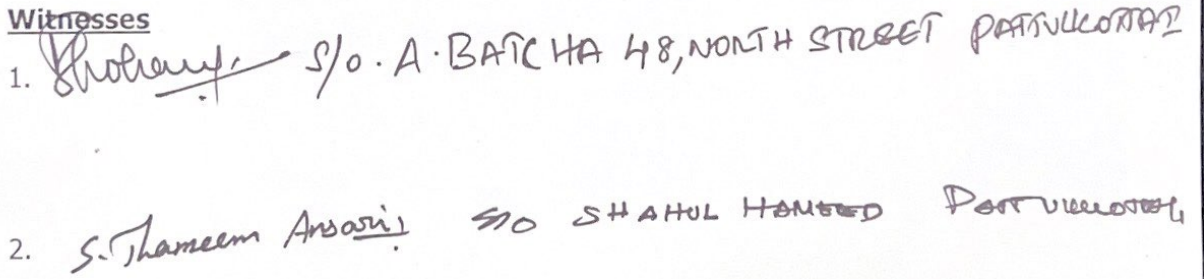 Witnesses
1. S/o. A. BATCHA 48, NORTH STREET PATTUKKOTTAI
2. S. Thameem Ansari S/O SHAHUL HAMEED